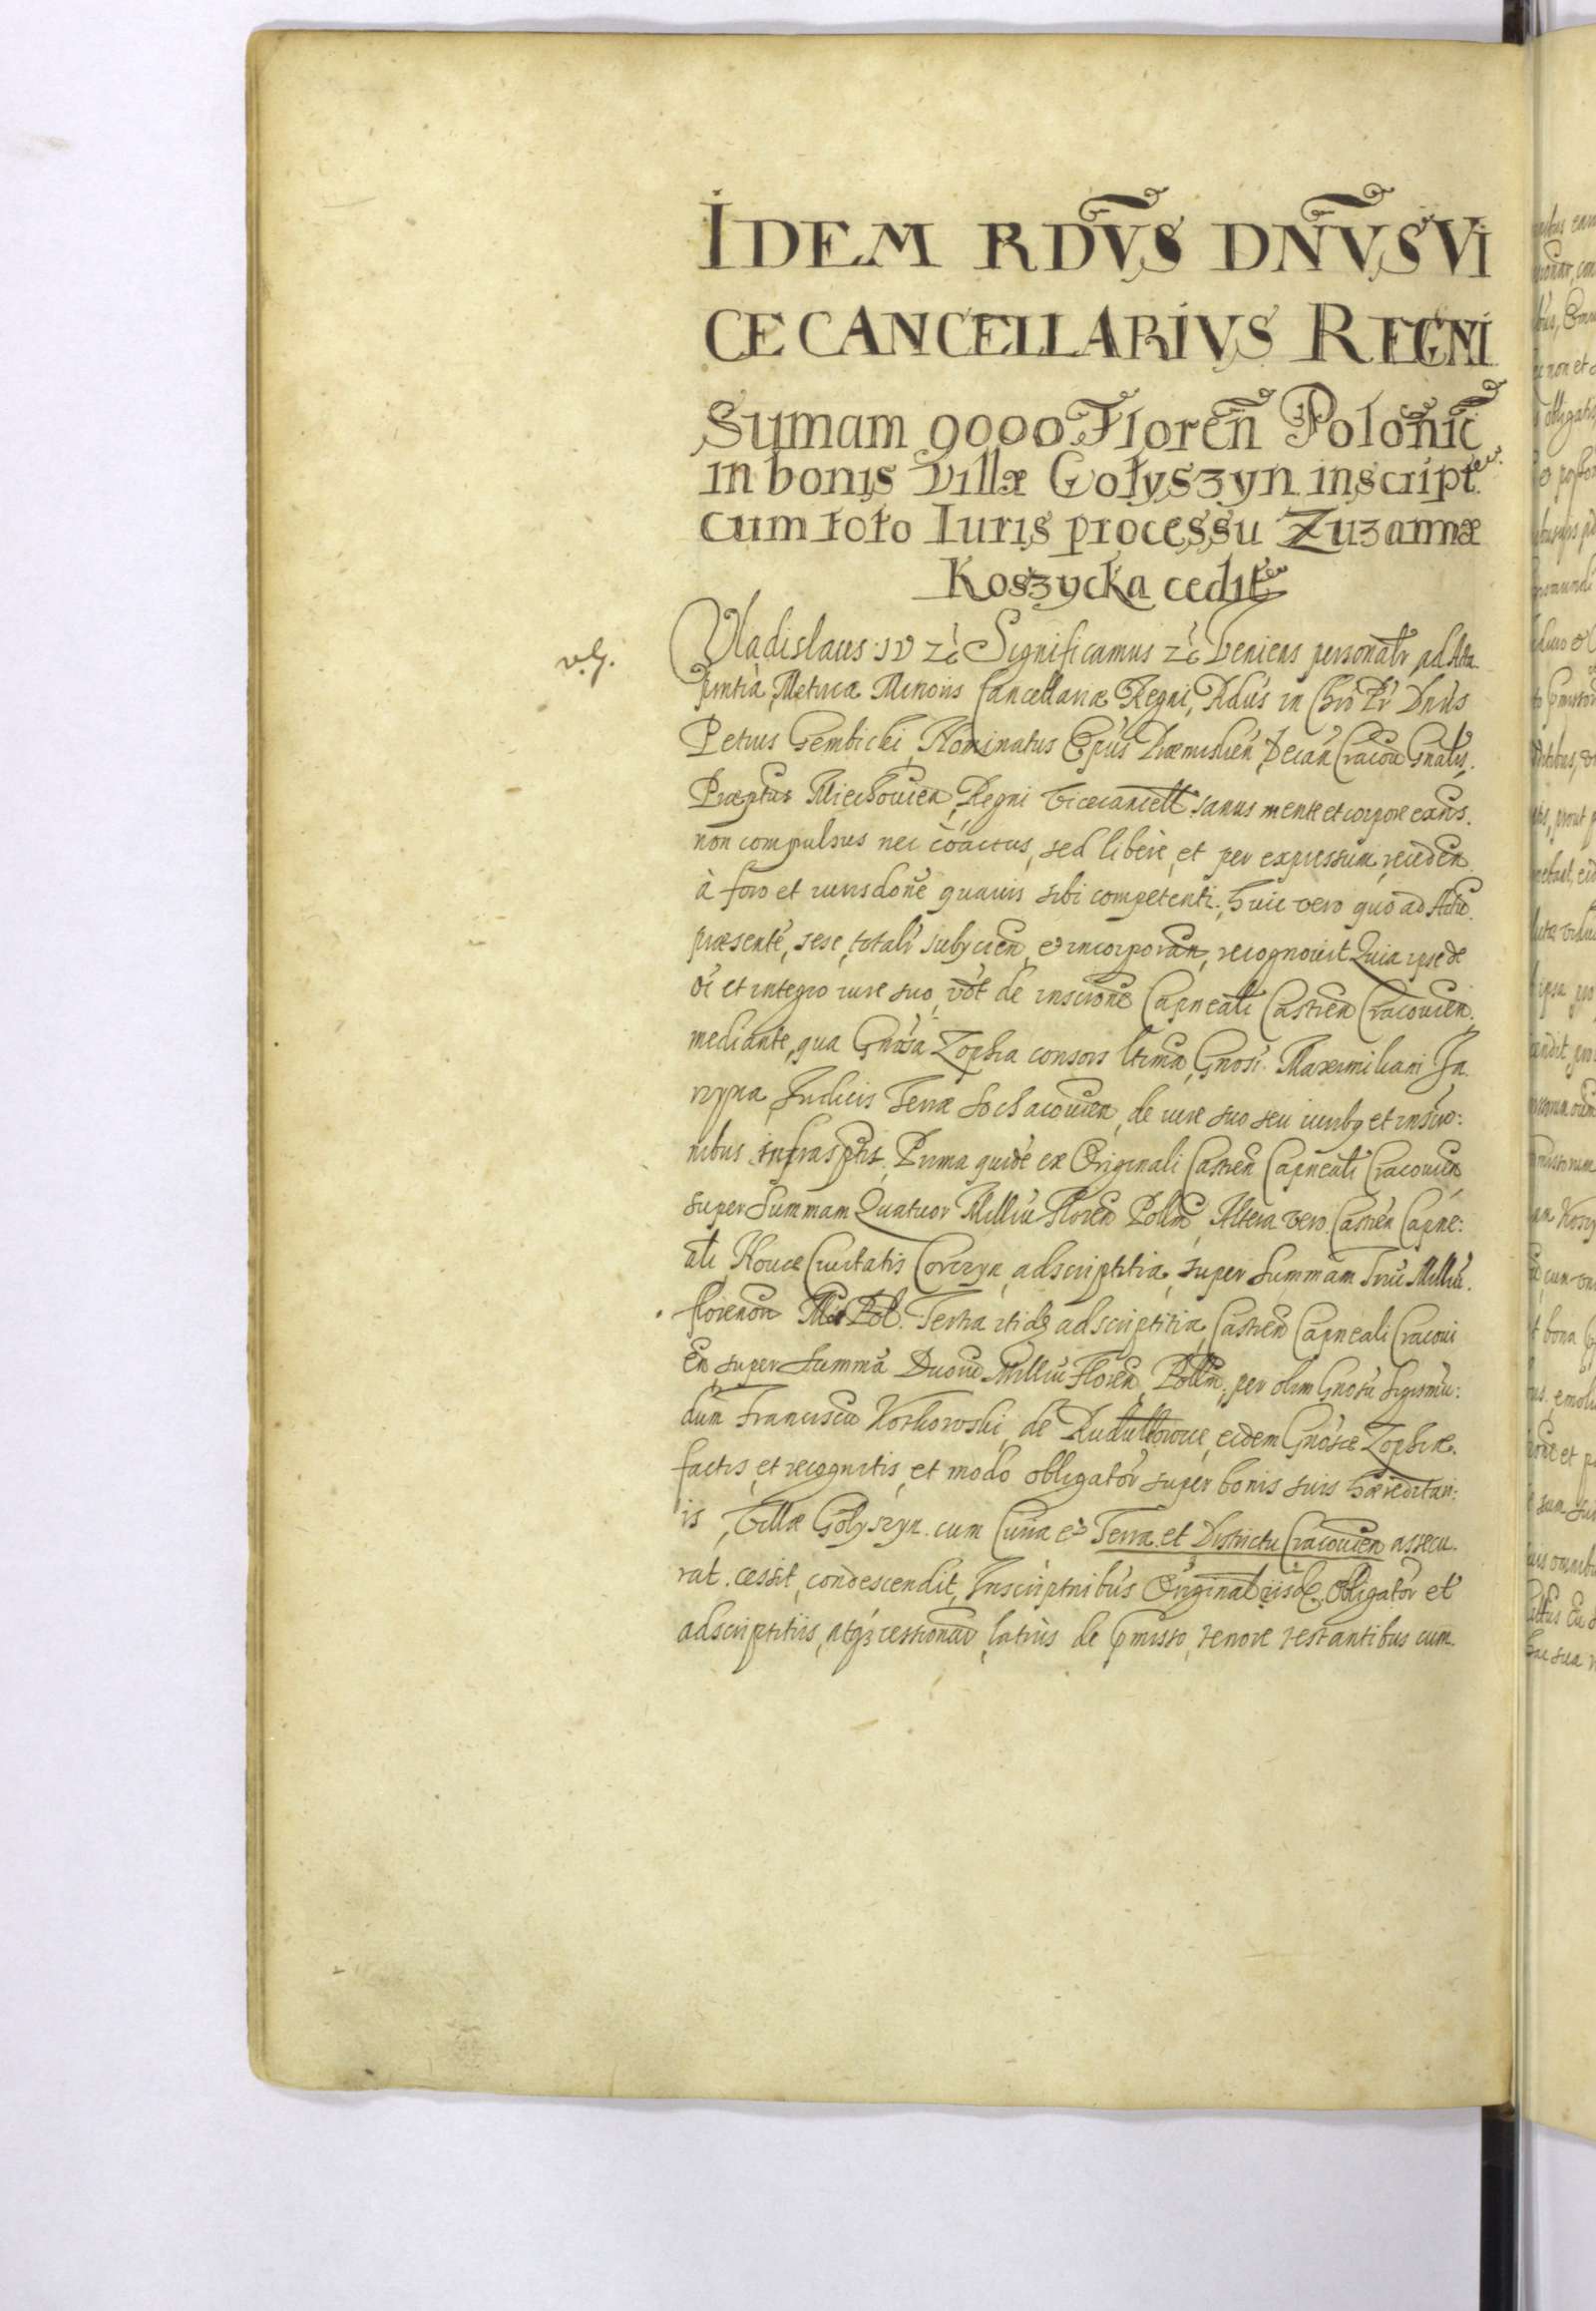 IDEM RDVS DNVS VI
CECANCELLARIVS REGNI
Sumam 9000 Floreñ Polonic
in bonis Villæ Gołyszyn inscript
cum toto Iuris processu Zuzannæ
Koszycka cedit
v.g.
Vladislaus IV zc̀ Significamus zc̀ Veniens personalr ad Acta
pntia Metricæ Minoris Cancellariæ Regni, Rdus in Chro Pr Dnus
Petrus Gembicki, Nominatus Epus Præmislien, Decan Cracou Gnalis,
Præptus Miechouien, Regni Vicecancell. sanus mente et corpore exns.
non compulsus nec coactus, sed liberè, et per expressum, recedeñ
à foro et iurisdone quauis sibi competenti, huic vero quo ad Actu
præsente, sese, totalr subycien, et incorporan, recognouit Quia ipse de
oi et integro iure suo, vdt de inscrone Capneali Castren Cracouien.
mediante, qua Gnosa Zophia consors ltima, Gnosi Maximiliani Ia
rzyna, Iudicis Terræ Sochacouien, de iure suo seu iuribq et inscro:
nibus infrasptis. Prima quide ex Originali Castren Capneali Cracouien
super Summam Quatuor Milliu Floren Pollm, Altera vero Castren Capne:
ali, Nouæ Ciuitatis Corczyn, adscriptitia, super Summam Triu Milliu
florenoru Pol. Tertia itidq adscriptitia, Castren Capneali Cracoui
en, super Summa Duoru Milliu Floren, Pollm, per olim Gnosu Sigismu:
dum Franciscu Korkowski, de eidem Gnosæ Zophiæ.
factis, et recognitis, et modo obligator super bonis suis hæreditari:
is, Villæ Golyszyn cum Curia et Terra et Districtu Cracouien assecu.
rat. cessit, condescendit, Inscriptnibus Original iisde, Obligator et
adscriptitiis, atq cessionum, latius de pmisso, tenore testantibus cum